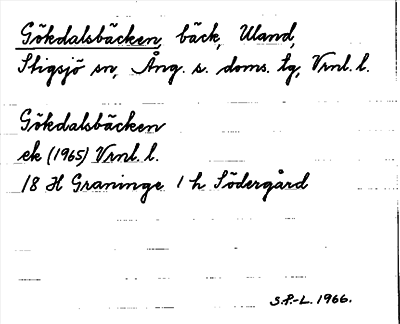 Gökdalsbäcken, bäck, Uland,
Stigsjö sn, Ång. s. doms. tg, Vrnl. l.
Gökdalsbäcken
ek (1965) Vrnl. l.
18 H Graninge 1 h Södergård
S.P.-L. 1966.